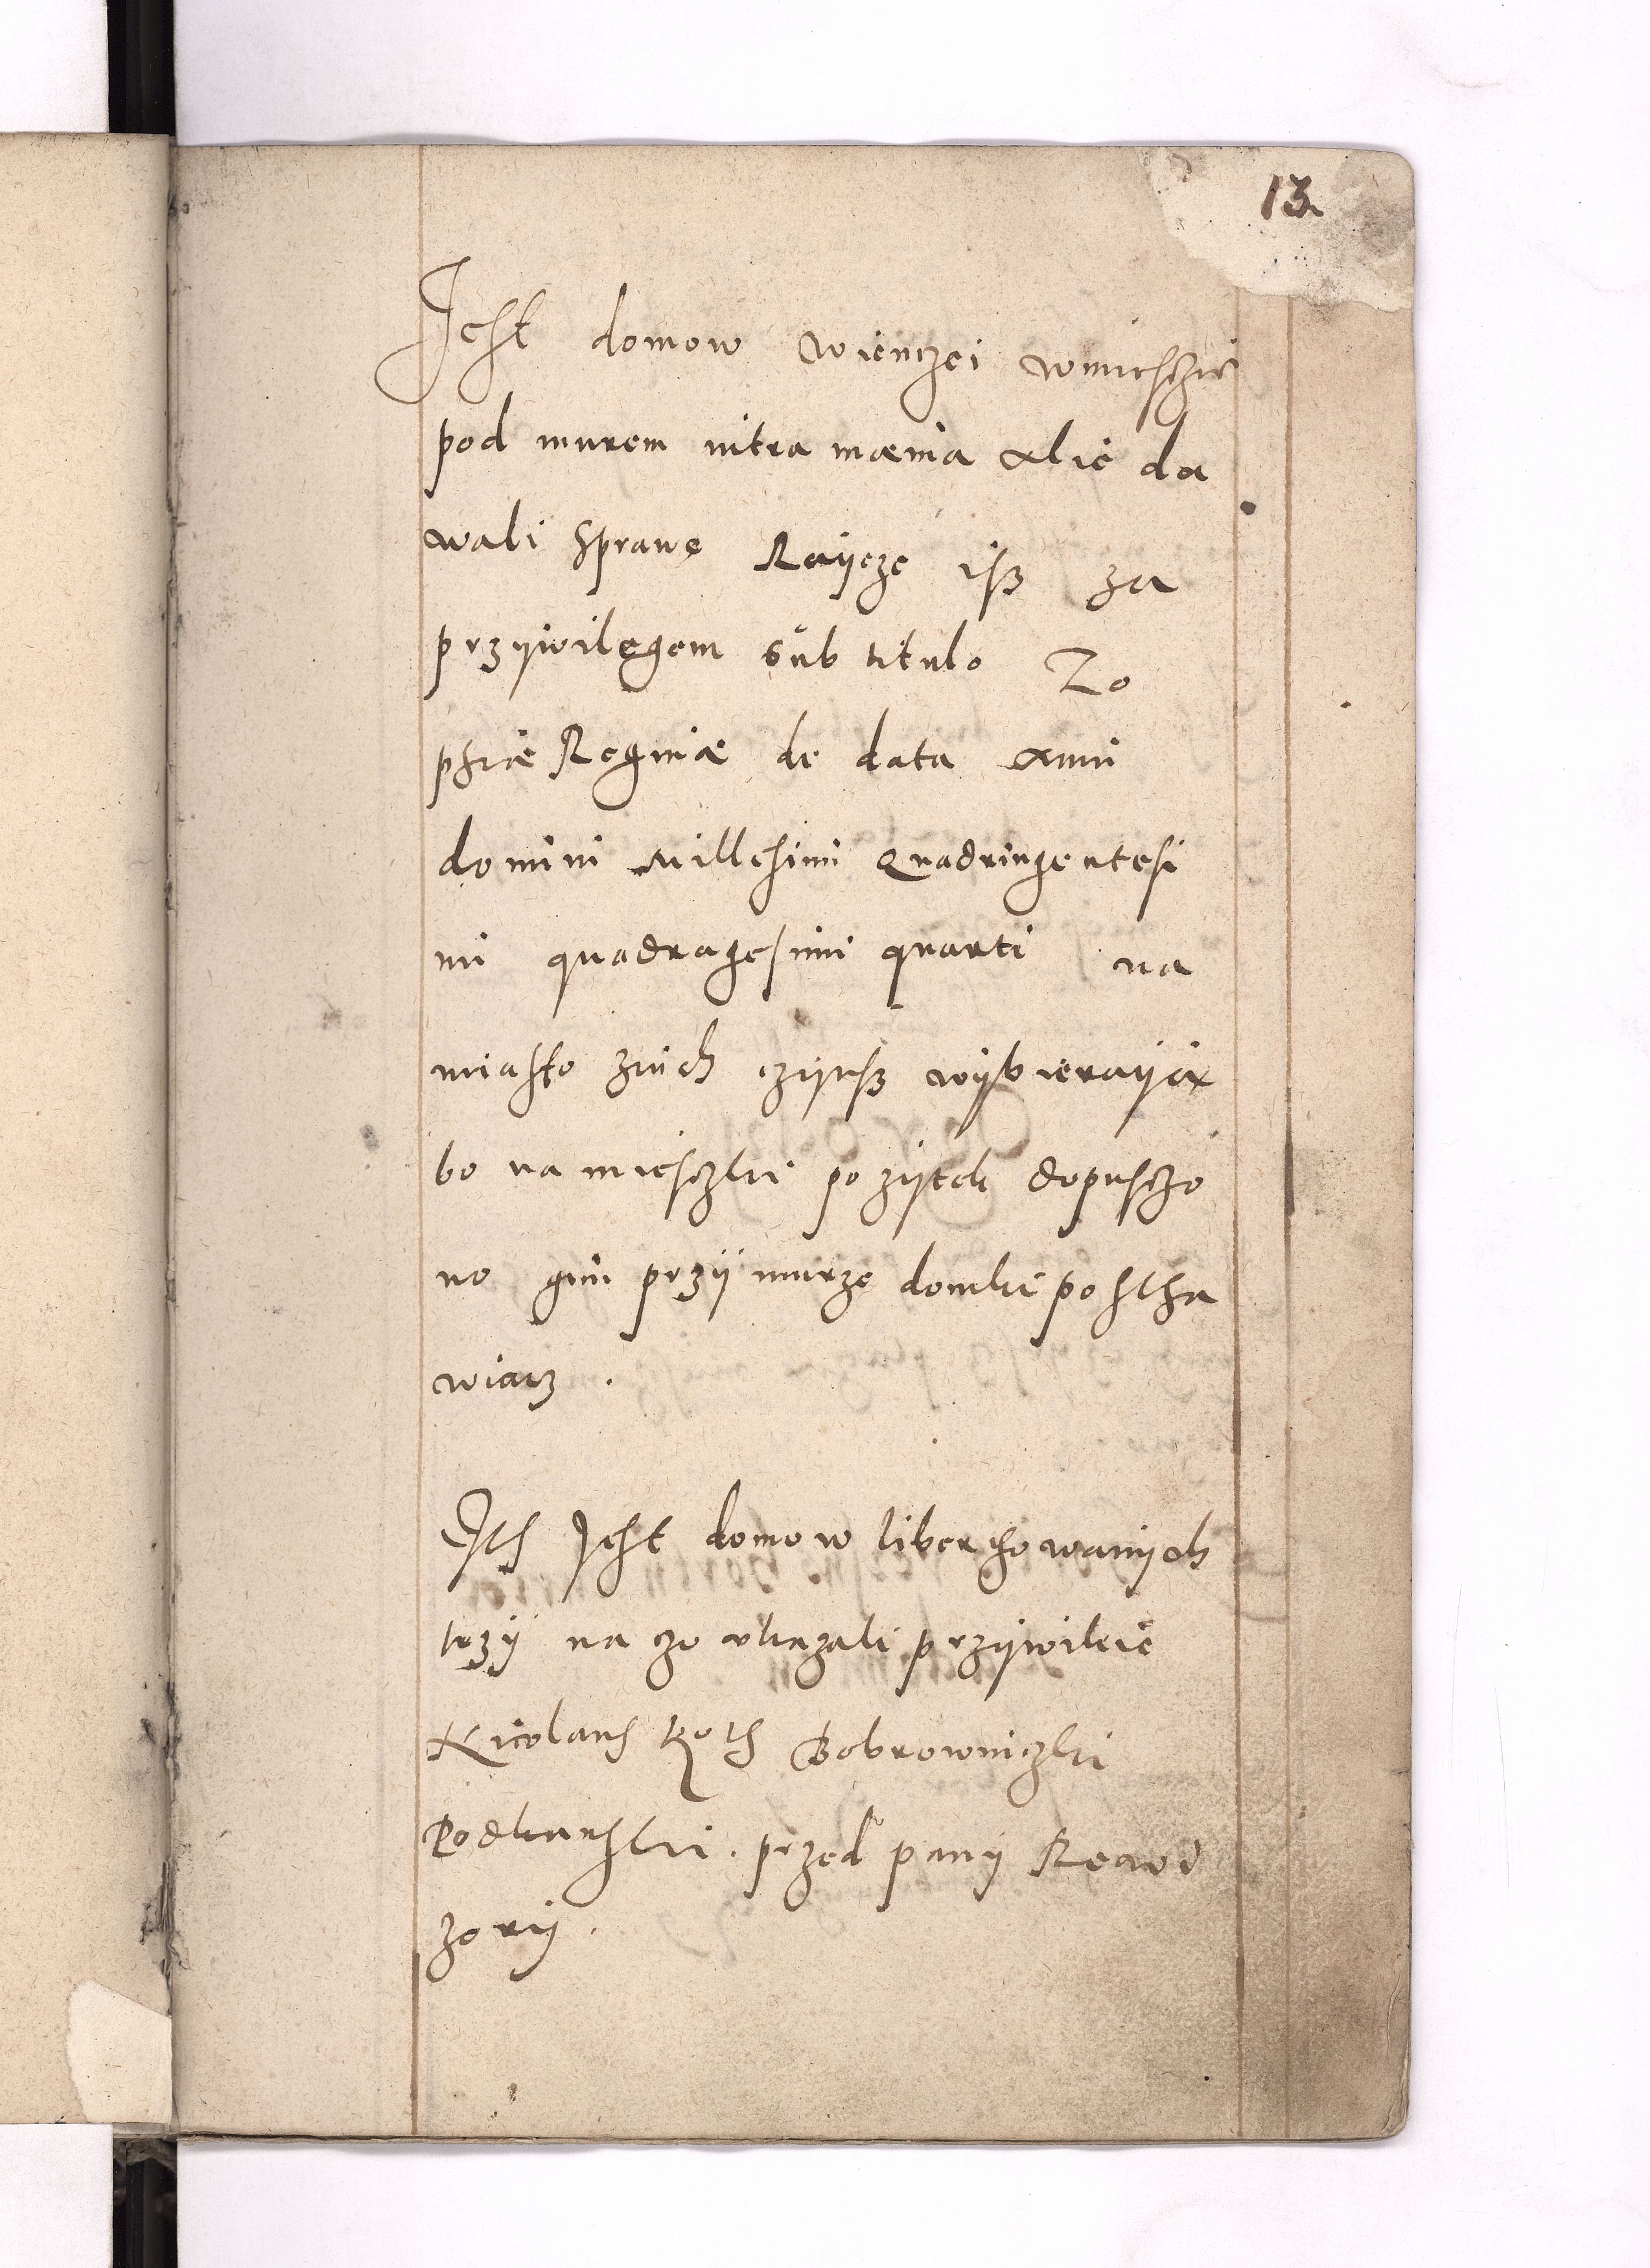 13
Jest domow wienczei wmiesczie
pod murem intra mænia alie da
wali sprawe Raycze isz za
przywilegem sub titulo Zo
phiæ Reginæ de data anni
domini Millesimi Quadringentesi
mi quadragesimi quarti na
miasto znich czynsz wybieraya
bo na mieszki pozytek dopusczo
no gim przy murze domki postha
wiacz .
Jest domow libertowanych
trzy na czo ukazali przywileie
Nicolaus Bobrowniczki
Podkanski . przed pany Rewi
zory .